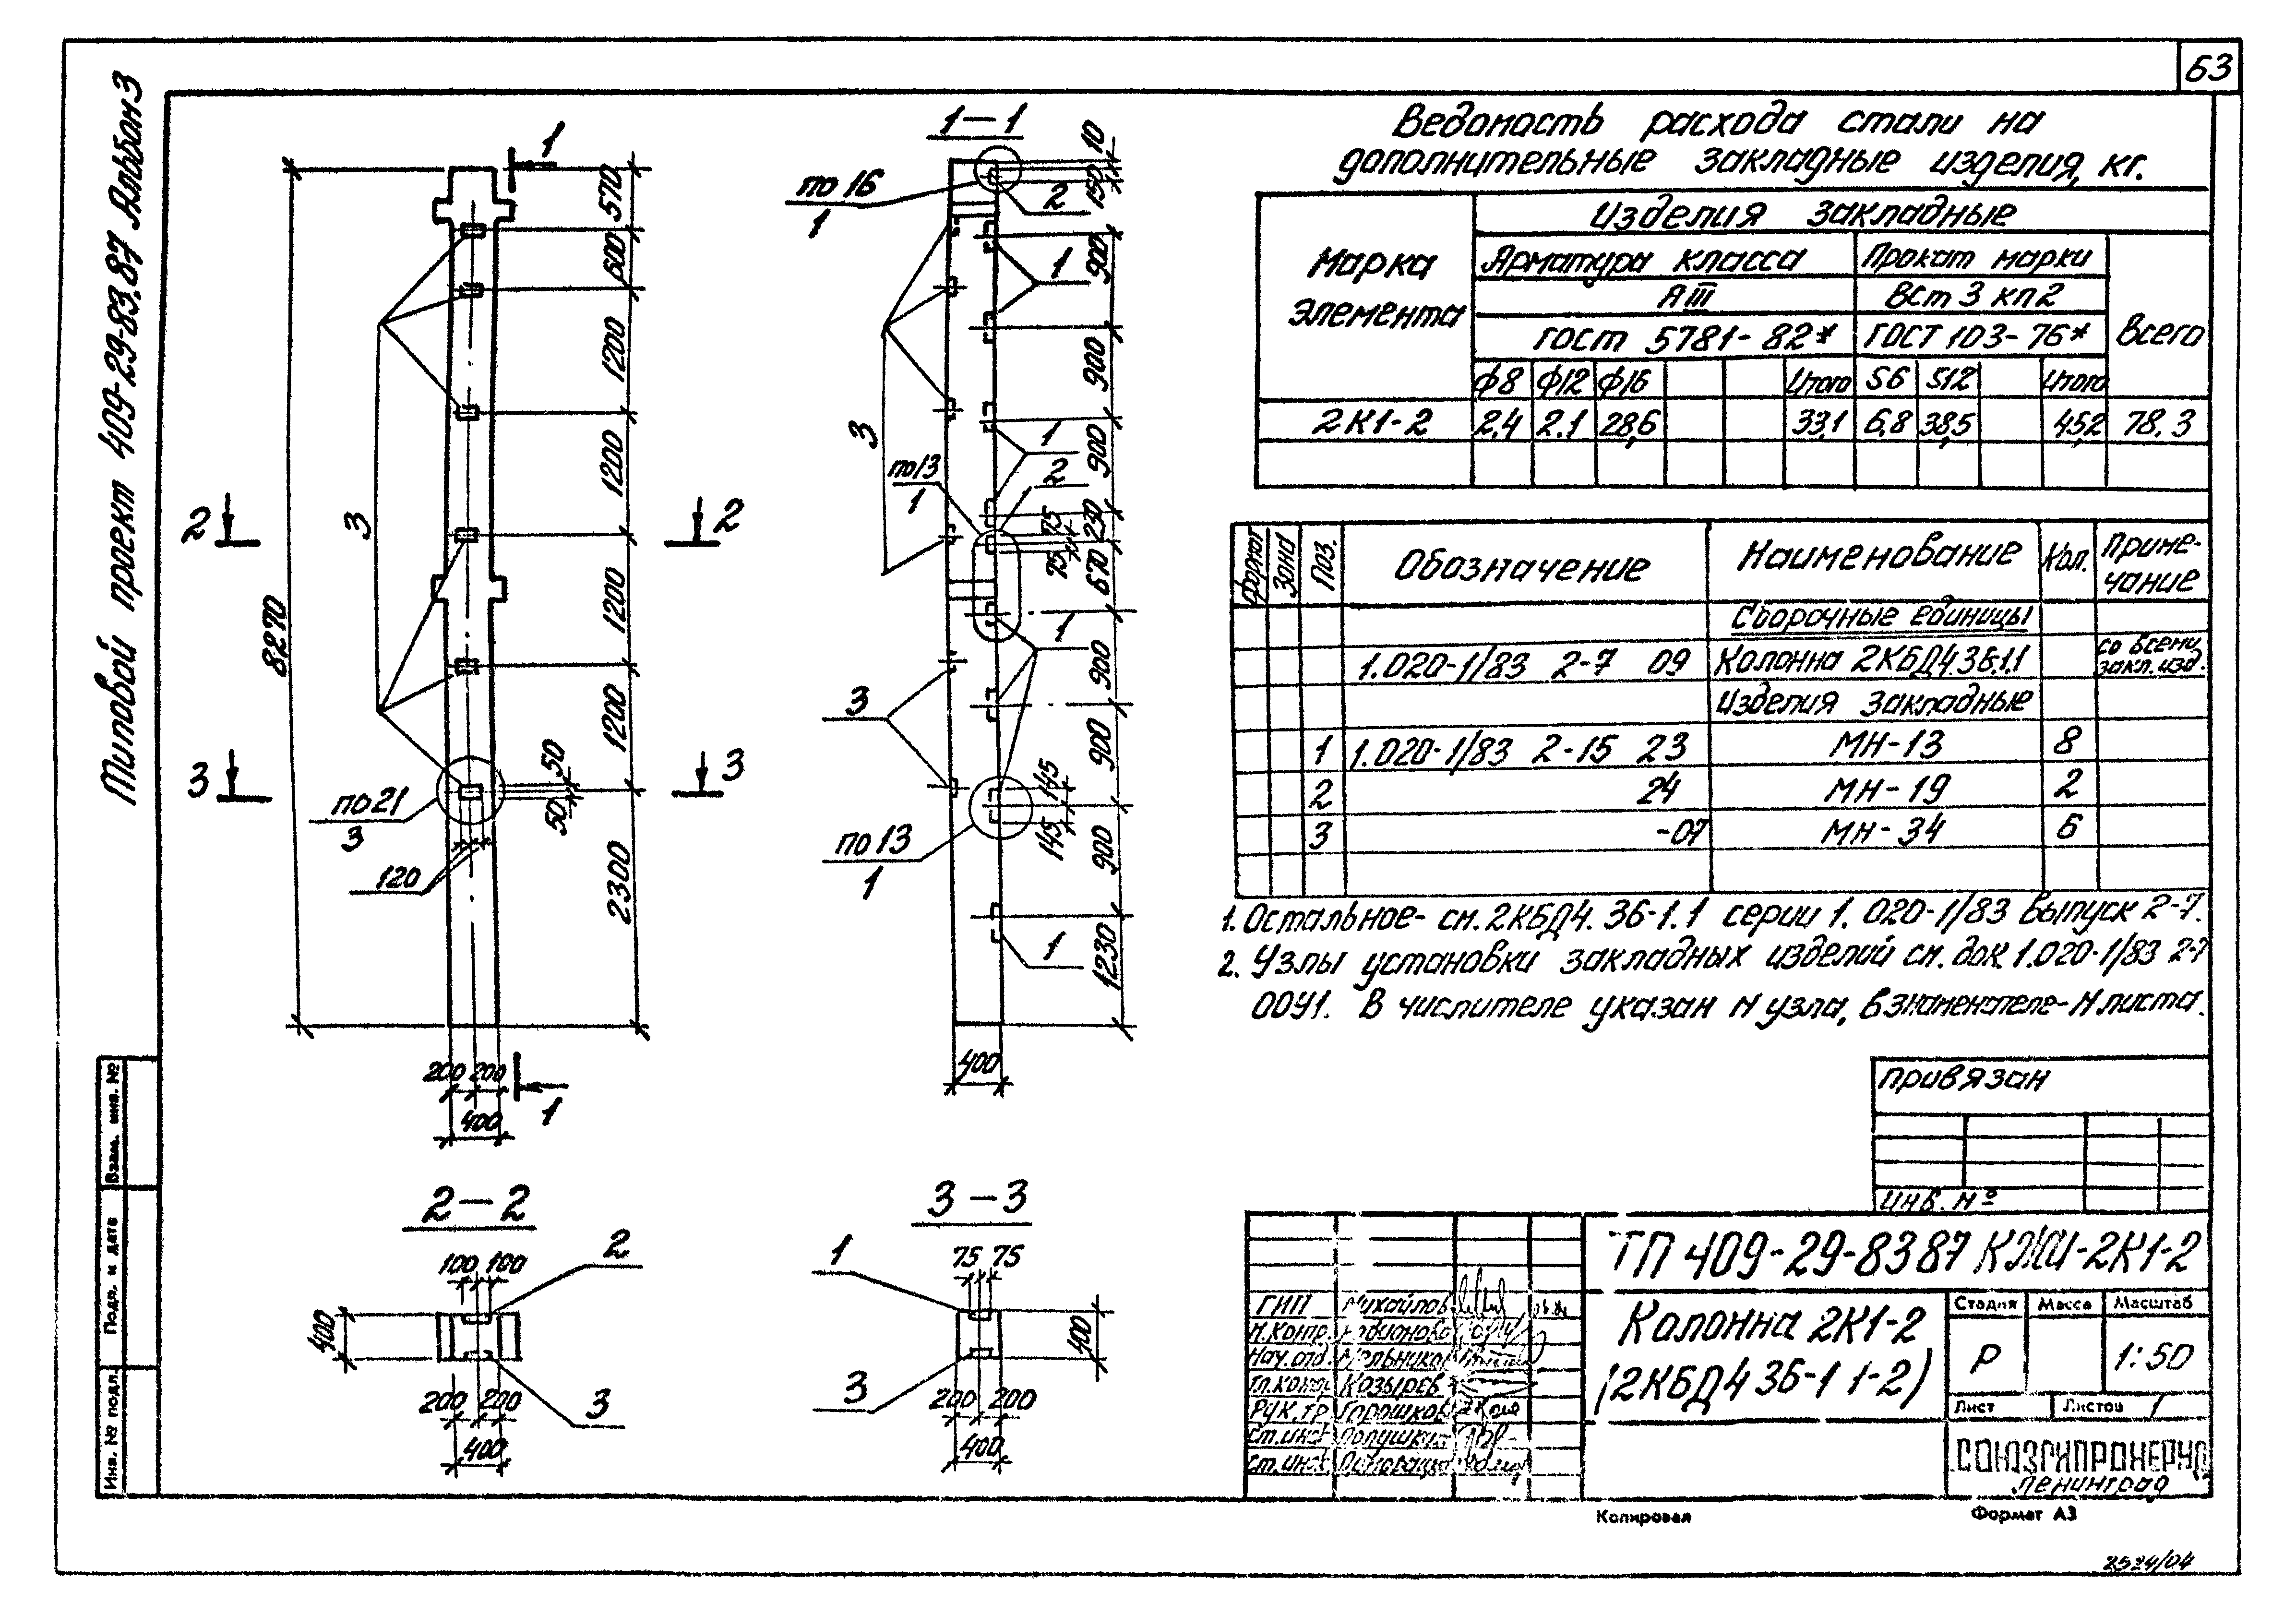 63
Типовой проект 409-29-83.87 Альбом 3
1
570
600
1200
1200
1200
1200
2300
8270
3
2
2
3
3
по 21
3
50
50
120
200 200
400
1
1-1
по 16
1
2
10
150
1
900
900
900
230
670
900
900
900
1230
3
1
2
по 13
1
75
75
1
3
145
145
по 13
1
1
400
2-2
100 100
2
400
200 200
3
400
3-3
1
75 75
400
3
200 200
400
Ведомость расхода стали на
дополнительные закладные изделия, кг.
Марка элемента
Изделия закладные
Арматура класса
Прокат марки
Всего
АIII
ВСт 3 кп2
ГОСТ 5781-82*
ГОСТ 103-76*
ф8 ф12 ф16 Итого δ6 δ12 Итого
2К1-2 2.4 2.1 28,6 33,1 6,8 38,5 45,2 78.3
Формат Зона Поз. Обозначение Наименование Кол. Приме-чание
Сборочные единицы
1.020-1/83 2-7 09 Колонна 2КБД4.36-1.1 со всеми закл.изд.
Изделия закладные
1 1.020-1/83 2-15 23 МН-13 8
2 24 МН-19 2
3 -07 МН-34 6
1. Остальное- см.2КБД4.36-1.1 серии 1.020-1/83 выпуск 2-7.
2. Узлы установки закладных изделий см. док. 1.020-1/83 2-7
00У1. В числителе указан N узла, в знаменателе- N листа.
Привязан
Инв. №
ТП 409-29-8387 КЖИ-2К1-2
ГИП Михайлов
Н.контр.
Нач.отд. Мельников
Гл.констр Козырев
Рук.гр Горошков
Ст.инж
Ст.инж
Колонна 2К1-2
(2КБД4 36-1 1-2)
Стадия Масса Масштаб
Р 1:50
Лист Листов 1
СОЮЗГИПРОНЕРУД
Ленинград
Взам. инв. №
Подп. и дата
Инв. № подл.
Копировал
Формат А3